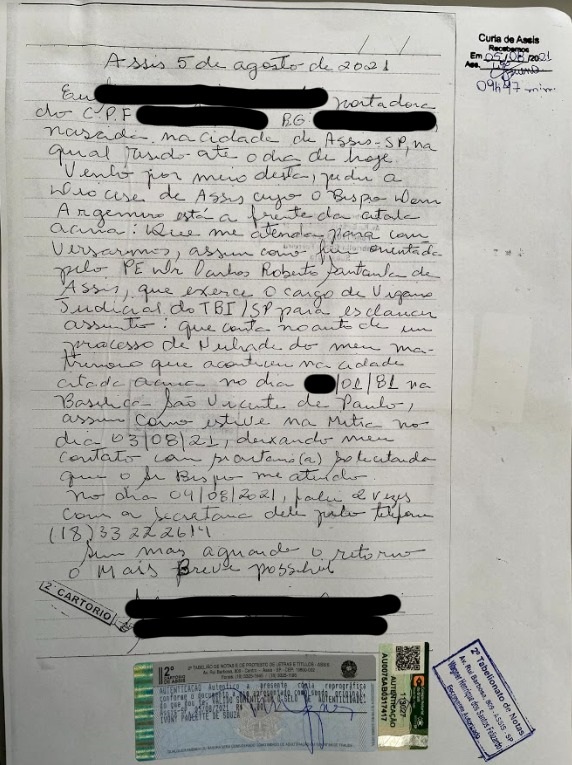 Curia de Assis
Recebemos
Em 05/08/2021
Ass.
09h47 min.
Assis 5 de agosto de 2021
Eu portadora
do C.P.F R.G.
nascida na cidade de Assis-SP, na
qual resido até o dia de hoje.
Venho por meio desta, pedir a
Diocese de Assis cujo o Bispo Dom
Argemiro está a frente da citada
acima: Que me atenda para con
versarmos, assim como fui orientada
pelo PE Dr Carlos Roberto Santana de
Assis, que exerce o cargo de Vigário
Judicial do TBI/SP para esclarecer
assunto: que consta no auto de um
processo de Nulidade do meu ma-
trimonio que aconteceu na cidade
citada acima no dia /01/81 na
Basilica São Vicente de Paulo,
assim como estive na Mitra no
dia 03/08/21, deixando meu
contato com solicitando
que o Sr Bispo me atenda.
No dia 04/08/2021, falei 2 vezes
com a secretaria dele pelo telefone
(18) 33 22 2614
Sem mas aguardo o retorno
o Mais Breve possivel
2º CARTÓRIO
2º
2º TABELIÃO DE NOTAS E DE PROTESTO DE LETRAS E TÍTULOS
AUTENTICAÇÃO
VALIDO SOMENTE COM O SELO DE AUTENTICIDADE
IVONY PAULETTE DE SOUZA
AUTENTICAÇÃO
AU0076AB0311417
2º Tabelionato de Notas
Av. Rui Barbosa, - ASSIS - SP
Wagner Henrique dos Santos
Escrevente Autorizado